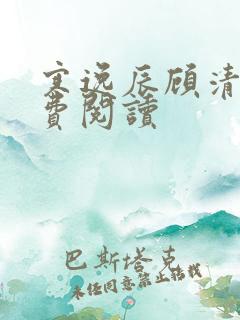 寒逸辰顾清
费阅读
巴斯塔克
未经同意禁止转载